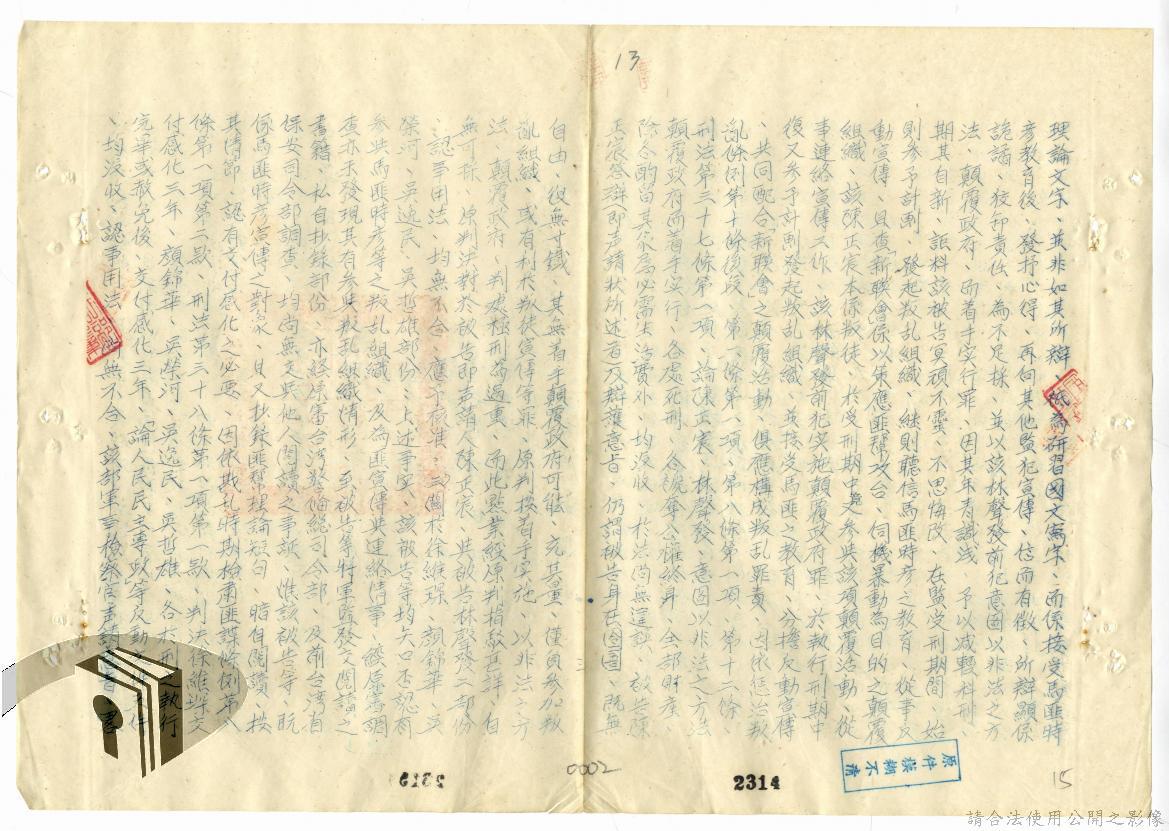 13
理論文字、並非如其所辯、祗為研習國文寫字、而係接受馬匪時
彥教育後、發抒心得、再向其他監犯宣傳、信而有徵、所辯顯係
詭譎、狡卸責任、為不足採、並以該林聲發前犯意圖以非法之方
法、顛覆政府、而着手实行罪、因其年青識浅、予以減輕科刑、
期其自新、詎料該被告冥頑不靈、不思悔改、在監受刑期間、始
則參予計劃、發起叛乱組織、継則聽信馬匪時彥之教育、從事反
動宣傳、且查「新联會」係以策應匪幫攻台、伺機暴動為目的之顛覆
組織、該陳正宸本係叛徒、於受刑期中、又參與該項顛覆活動、從
事連絡宣傳工作、該林聲發前犯实施顛覆政府罪、於執行刑期中
復又參予計劃發起叛乱組織、並接受馬匪之教育、分擔反動宣傳
、共同配合「新联會」之顛覆活動、俱應構成叛乱罪責、因依惩治叛
乱條例第十條後段、第一條第一項、第八條第一項、第十二條、
刑法第三十七條第一項、論陳正宸、林聲發、意图以非法之方法
顛覆政府而着手实行、各處死刑、各褫奪公權終身、全部財產、
除各酌留其家属必需生活費外、均沒收、於法尚無違誤、被告陳
正宸答辯即声請狀所述者及辯護意旨、仍謂被告身在囹圄、既無
自由、復無寸鐵、其無着手顛覆政府可能、充其量、僅負參加叛
乱組織、或有利於叛徒宣傳等罪、原判按着手实施、以非法之方
法、顛覆政府、判處極刑為過重、而此點業經原判指駁甚詳、自
無可採、原判决對於被告即声請人陳正宸、共被告林聲發二部份
、認事用法、均無不合、應予核准、關於徐維琛、顏錦華、吳
榮河、吳逸民、吳哲雄部份、上述事实、該被告等均矢口否認有
參與馬匪時彥等之叛乱組織、及為匪宣傳與連絡情事、經原審調
查亦未發現其有參與叛乱組織情形、至被告等將軍監發交閱讀之
書籍、私自抄錄部份、亦經原審台湾警備總司令部、及前台湾省
保安司令部調查、均尚無交與他人閱讀之事証、惟該被告等、既
係馬匪時彥宣傳之對象、且又抄錄匪幫理論短句、暗自閱讀、按
其情節、認有交付感化之必要、因依戡乱時期檢肅匪諜條例第八
條第一項第二款、刑法第三十八條第一項第一款、判决徐維琛交
付感化三年、顏錦華、吳榮河、吳逸民、吳哲雄、各於刑之執行
完畢或赦免後、交付感化三年、「論人民民主專政」等反動文件
、均沒收、認事用法、均無不合、該部軍事檢察官声請
0002
2314
原件模糊不清
15
請合法使用公開之影像